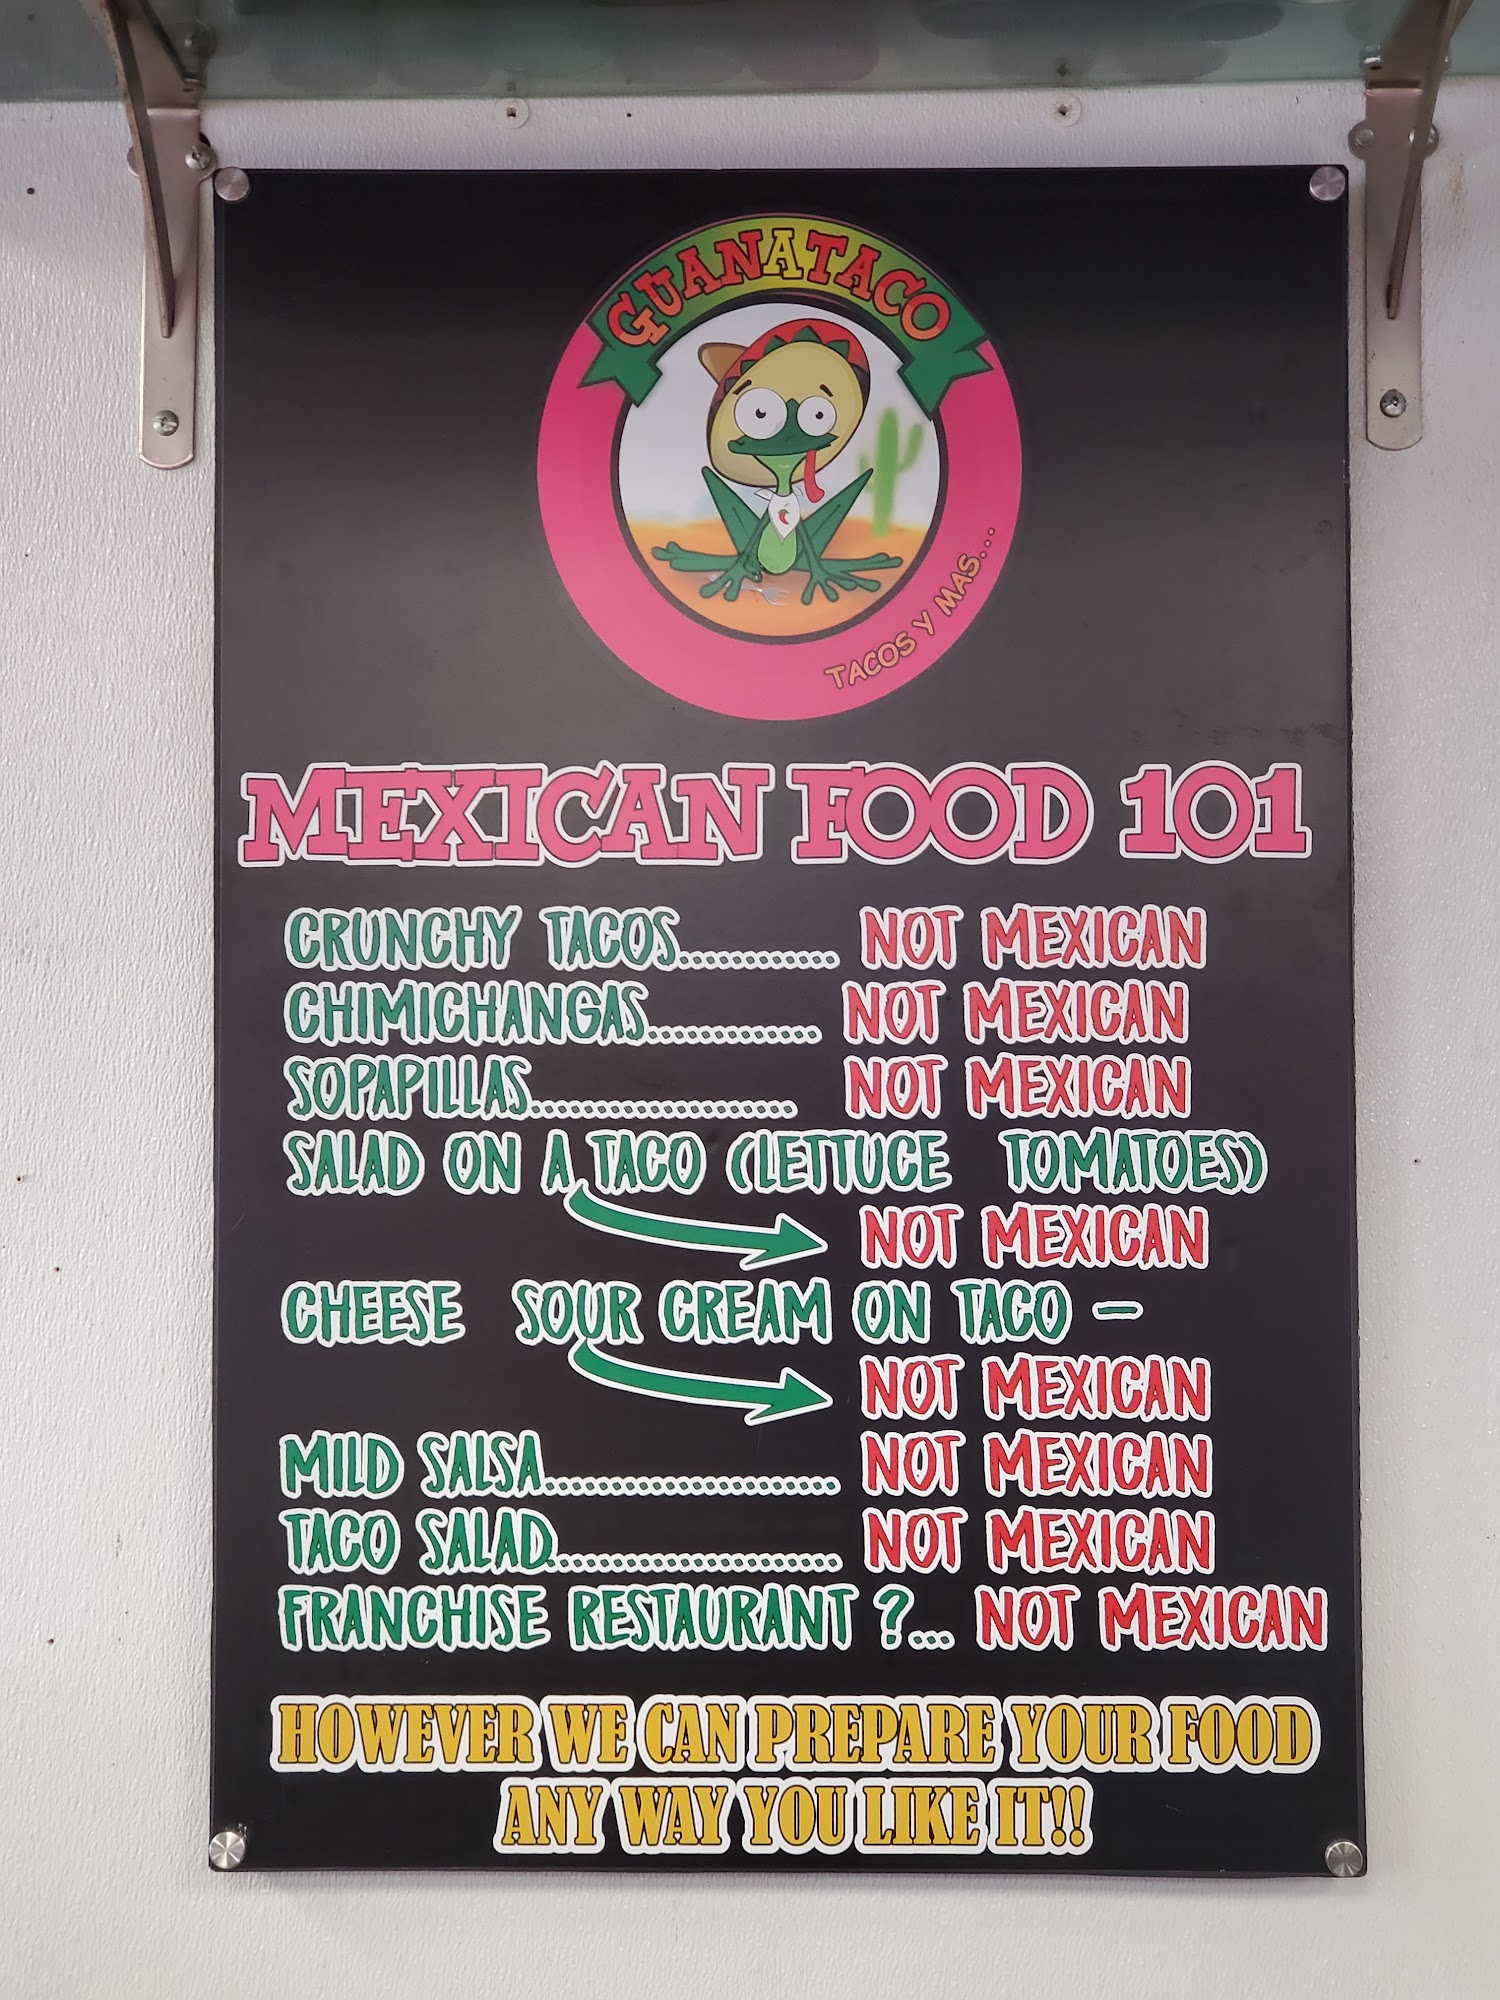 GUANATACO
TACOS Y MAS...
MEXICAN FOOD 101
CRUNCHY TACOS............. NOT MEXICAN
CHIMICHANGAS.............. NOT MEXICAN
SOPAPILLAS...................... NOT MEXICAN
SALAD ON A TACO (LETTUCE TOMATOES)
NOT MEXICAN
CHEESE SOUR CREAM ON TACO –
NOT MEXICAN
MILD SALSA........................ NOT MEXICAN
TACO SALAD........................ NOT MEXICAN
FRANCHISE RESTAURANT ?... NOT MEXICAN
HOWEVER WE CAN PREPARE YOUR FOOD
ANY WAY YOU LIKE IT!!